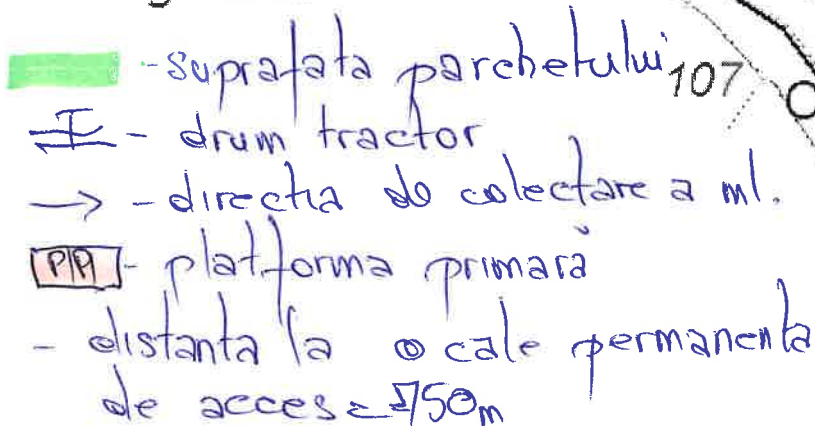 - suprafata parchetului 107
T - drum tractor
→ - directia de colectare a ml.
PP - platforma primară
- distanta la o cale permanenta
de acces = 750m